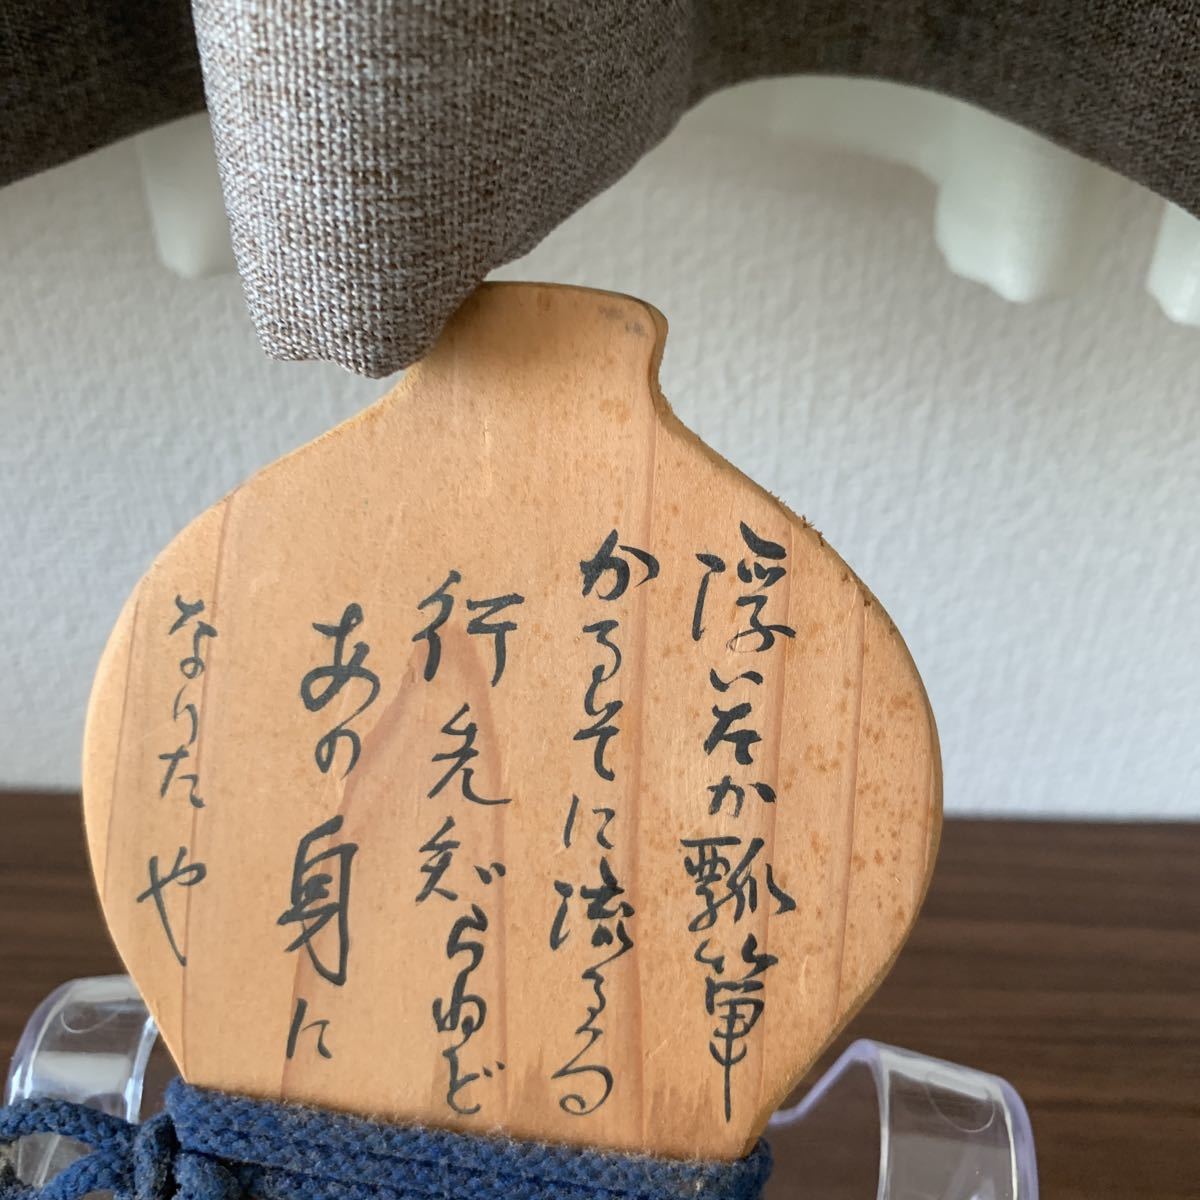 浮いたか瓢箪
かるそに流るゝ
行先知らねど
あの身に
なりたや